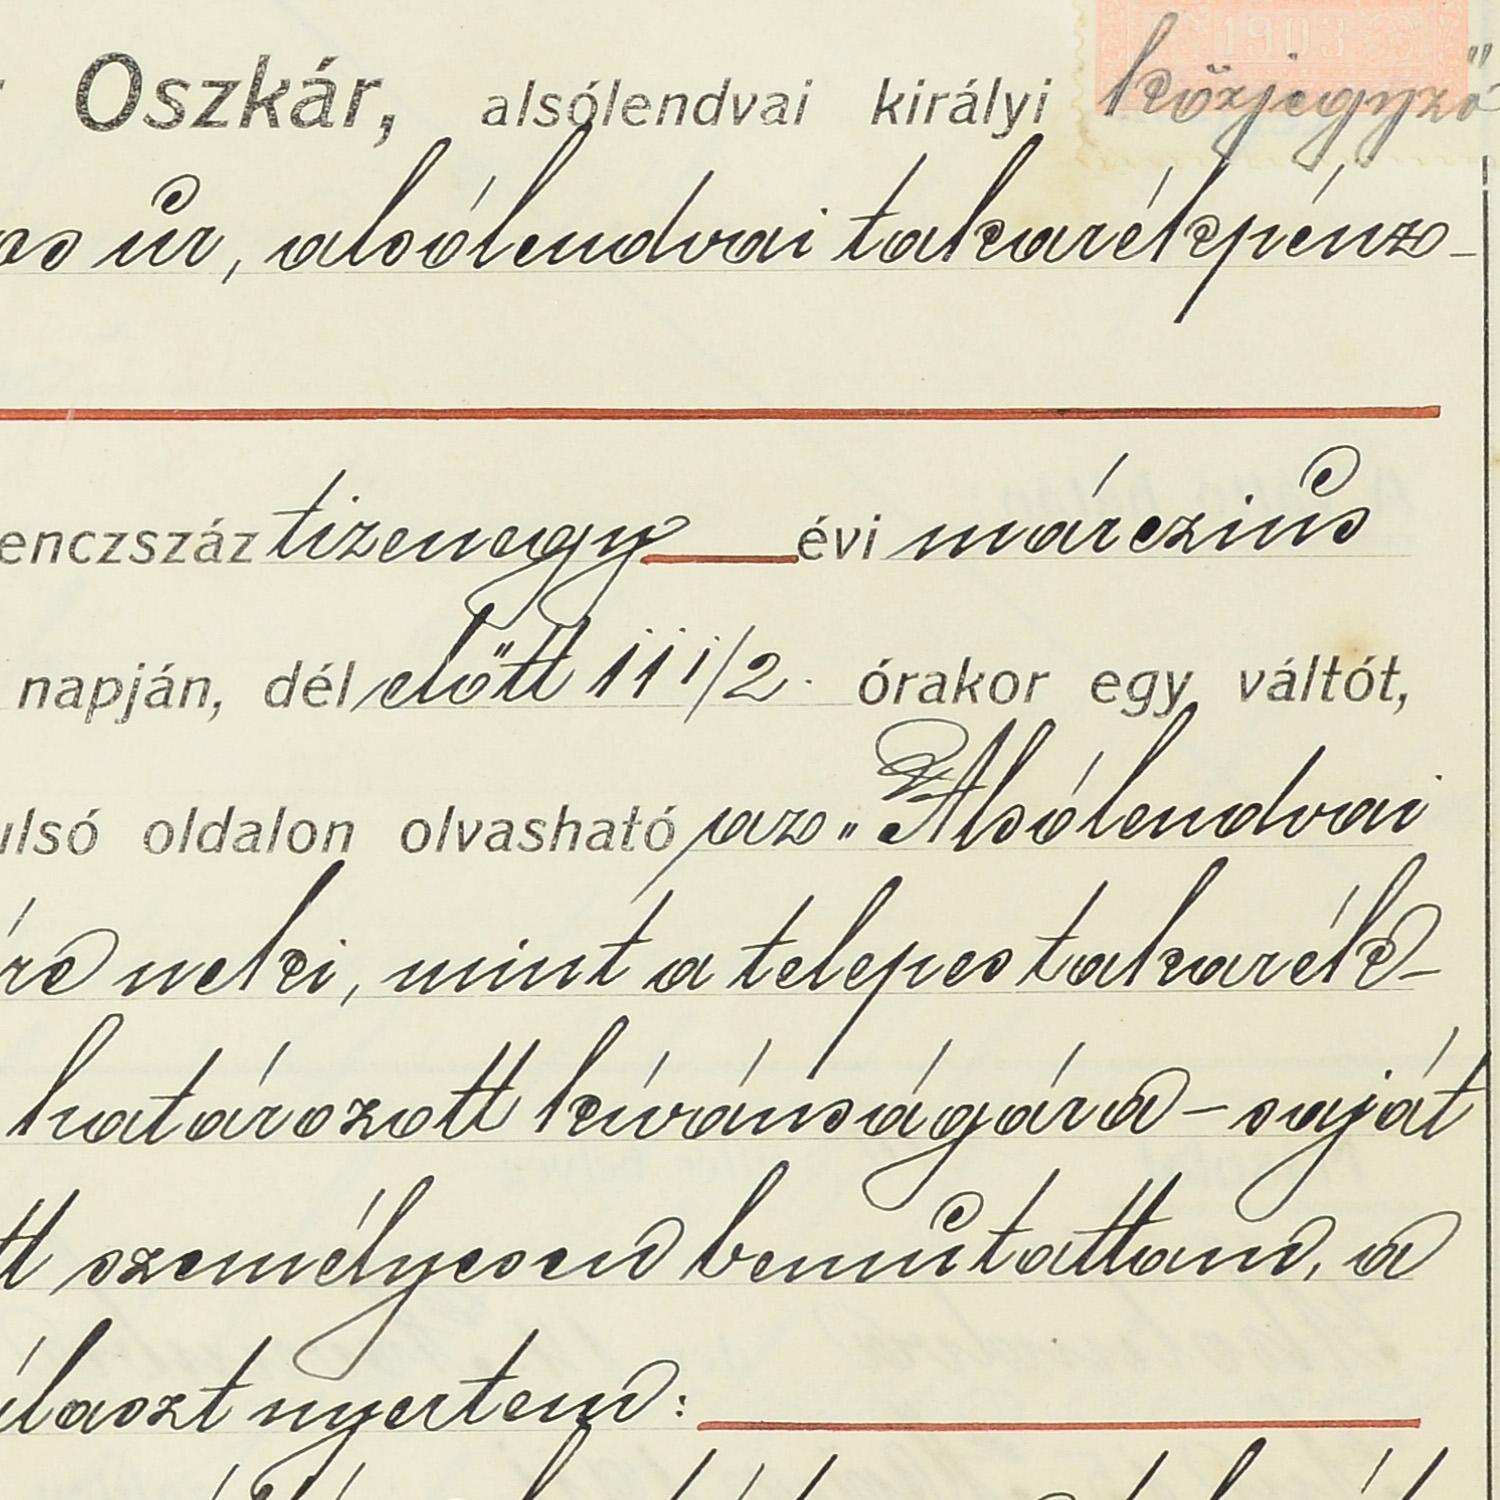 Oszkár, alsólendvai királyi közjegyző
úr, alsólendvai takarékpénz-
tizenegy évi márczius
napján, dél előtt 11 1/2 órakor egy váltót,
oldalon olvasható az „Alsólendvai
neki, mint a telepes takarék-
határozott kívánságára - saját
személyesen bemutattam, a
nyertem: